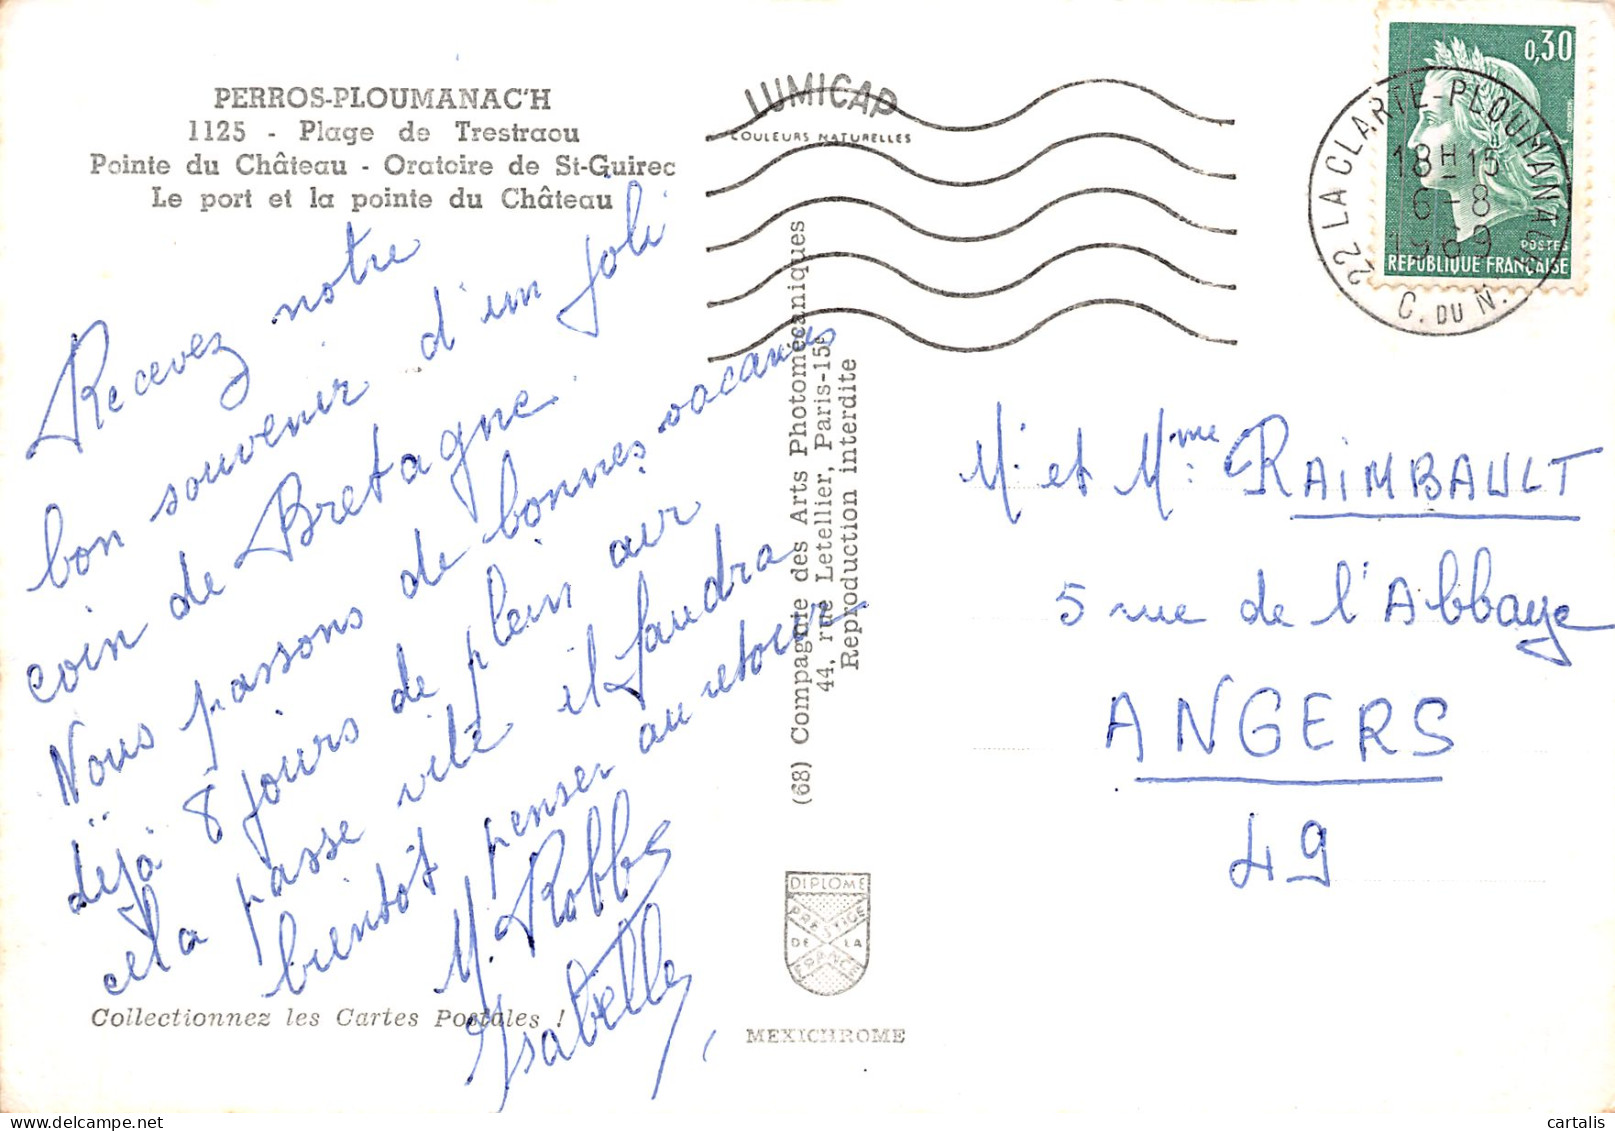 PERROS-PLOUMANAC'H
1125 - Plage de Trestraou
Pointe du Château - Oratoire de St-Guirec
Le port et la pointe du Château
LUMICAP
COULEURS NATURELLES
0,30
POSTES
REPUBLIQUE FRANÇAISE
22 LA CLARTE-PLOUMANAC'H
18H15
6-8
1969
C. DU N.
Recevez notre
bon souvenir d'un joli
coin de Bretagne.
Nous passons de bonnes vacances
déjà 8 jours de plein air
cela passe vite il faudra
bientôt penser au retour
M. Robbe
Isabelle
(68) Compagnie des Arts Photomécaniques
44, rue Letellier, Paris-15e
Reproduction interdite
Mr et Mme RAIMBAULT
5 rue de l'Abbaye
ANGERS
49
DIPLOME
PRESTIGE
DE LA
FRANCE
Collectionnez les Cartes Postales !
MEXICHROME
cartalis